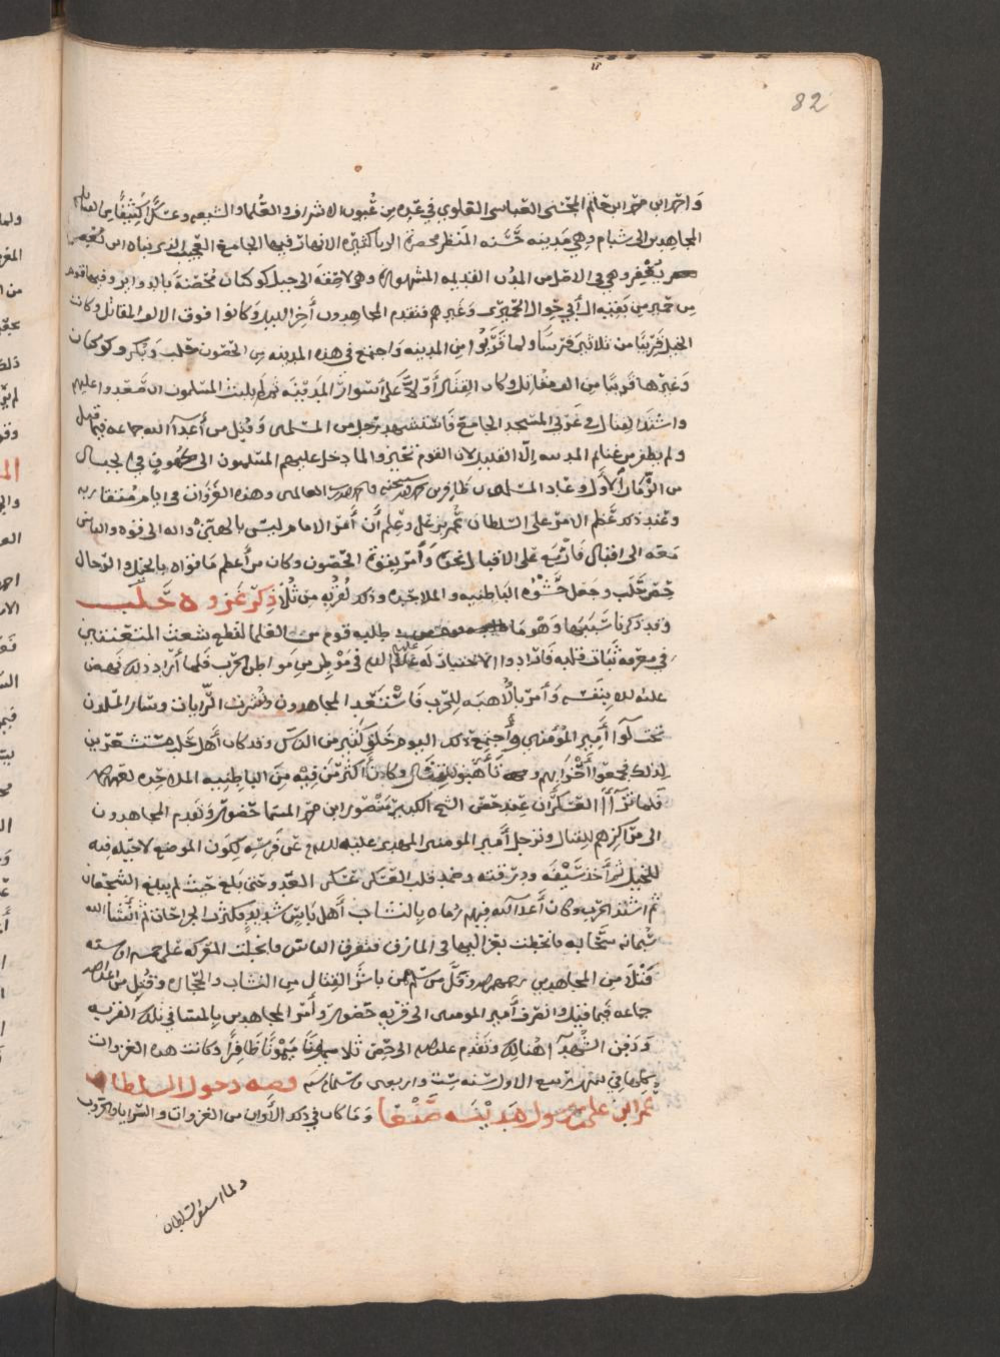 82
واحمد ابن محمد ابن حاتم العباسي العلوي في عده من عيون الاشراف والعلما والشيعه وعسكرا كثيفا من
المجاهدين الى شبام وهي مدينه حسنه المنظر محصره الوبا كثيره الانهار فيها الجامع العجيب الذي بناه ابن
يعفر وهي في الاصل من المدن القديمه المشهوره وهي لاصقه الى جبل كوكبان محصنة بالدواير وفيها قوم
من حمير من بقيه ال ابي حوال الحميري وغيرهم فتقدم المجاهدون اخر الليل وكانوا فوق الالف المقاتل وكانت
الخيل قريبا من ثلاثين فرسا ولما قربوا من المدينه واجتمع في هذه المدينه من الحصون حلب وبكر وكوكبان
وغيرها قريبا من الف مقاتل وكان القتال اولا على اسوار المدينه ثم لم يلبث المسلمون ان صعدوا عليهم
واشتد القتال في غربي المسجد الجامع فاستشهد رجل من المسلمين وقتل من اعدآ الله جماعه فيما قيل
ولم يظفر من غنايم المدينه الا القليل لان القوم تحيزوا لما دخل عليهم المسلمون الى كهوف في الجبال
من الزمان الاول وعاد المسلمون ظافرين والحمد لله رب العالمين وهذه الغزوات في ايام متقاربه
وعند ذلك عظم الامر على السلطان عمر بن علي وعلم ان امر الامام ليس بالهين وانه الى قوه والناس
معه الى اقبال فازمع على الاقبال نحوه وامر بقوة الحصون وكان من اعظم ما قواه بالخيل والرجال
حصن حلب وجعل حشوه الباطنيه والملاحده وذلك لقربه من ثلا ذكر غزوة حلب
وقد ذكرنا سببها وهو ما طلبه قوم من العلما لقطع شعث المتعنتين
في معرفه ثبات قلبه فارادوا الاختبار له عليه السلم في موطن من مواطن الحرب فلما اراد ذلك نهض
عليه السلم بنفسه وامر بالاهبه للحرب فاستعد المجاهدون ونشرت الرايات وسار المسلمون
تحت لوآ امير المؤمنين واجتمع ذلك اليوم خلق كثير من الناس وقد كان اهل حلب مستشعرين
لذلك فجمعوا احزابهم وتأهبوا للقتال وكان اكثر من فيه من الباطنيه الملاحده لعنهم الله
فلما ترآأ العسكران عند حصن الشيخ الكبير منصور ابن محمد المسما حضور وتقدم المجاهدون
الى مراكزهم للقتال وترجل امير المومنين المهدي عليه السلام عن فرسه لكون الموضع لا حيله فيه
للخيل ثم اخذ سيفه ودرقته وصمد قلب العسكر عسكر العدو حتى بلغ حيث لم يبلغ الشجعان
ثم اشتد الحرب وكان اعدآ الله فيهم رماه بالنشاب اهل باس شديد فكثرت الجراحات ثم انشأ الله
سبحانه سحابه فانحطت بعزاليها في المازق فتفرق الناس وانجلت المعركه على خمسه او سته
قتلا من المجاهدين رحمهم الله وقل من سلم ممن باشر القتال من النشاب والحجاره وقتل من الملاحده
جماعه فيما قيل وانصرف امير المومنين الى قريه حضور وامر المجاهدين بالمسا في تلك القريه
ودفن الشهدآ هنالك وتقدم عليه السلم الى حصن ثلا ميمونا ظافرا وكانت هذه الغزوات
كلها في شهر ربيع الاول سنه ست واربعين وستمايه قصه دخول السلطان
عمر ابن علي رسول مدينه صنعا وما كان في ذلك الأوان من الغزوات والسرايا والحروب
ولما استقر السلطان